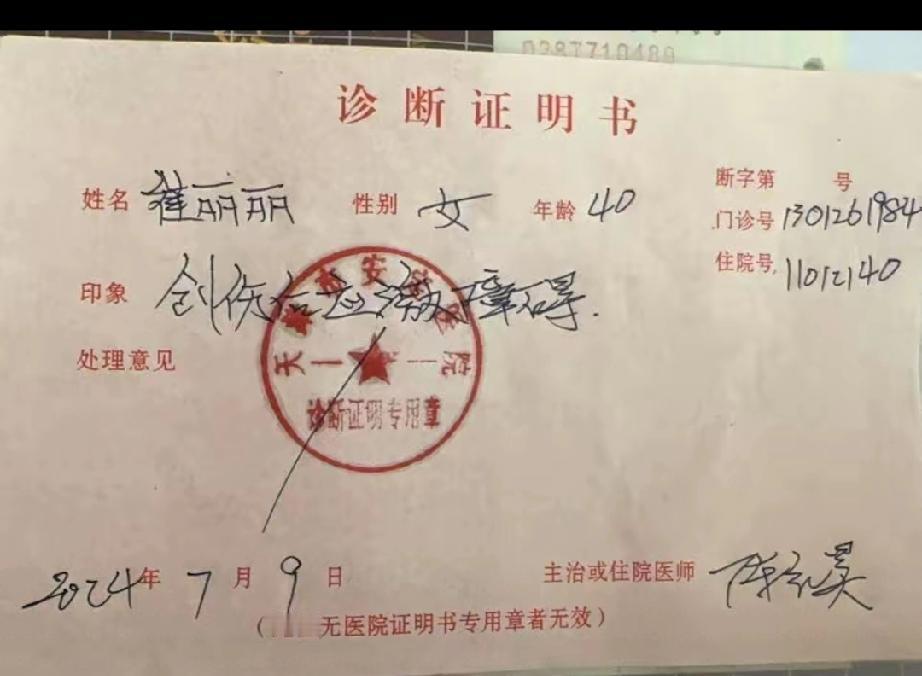 0387710489
诊断证明书
姓名 崔丽丽 性别 女 年龄 40
断字第 号
门诊号 1301261984
住院号 11012140
印象 创伤后应激障碍.
处理意见
天 安 医院
诊断证明专用章
2024年7月9日
主治或住院医师
( 无医院证明书专用章者无效)